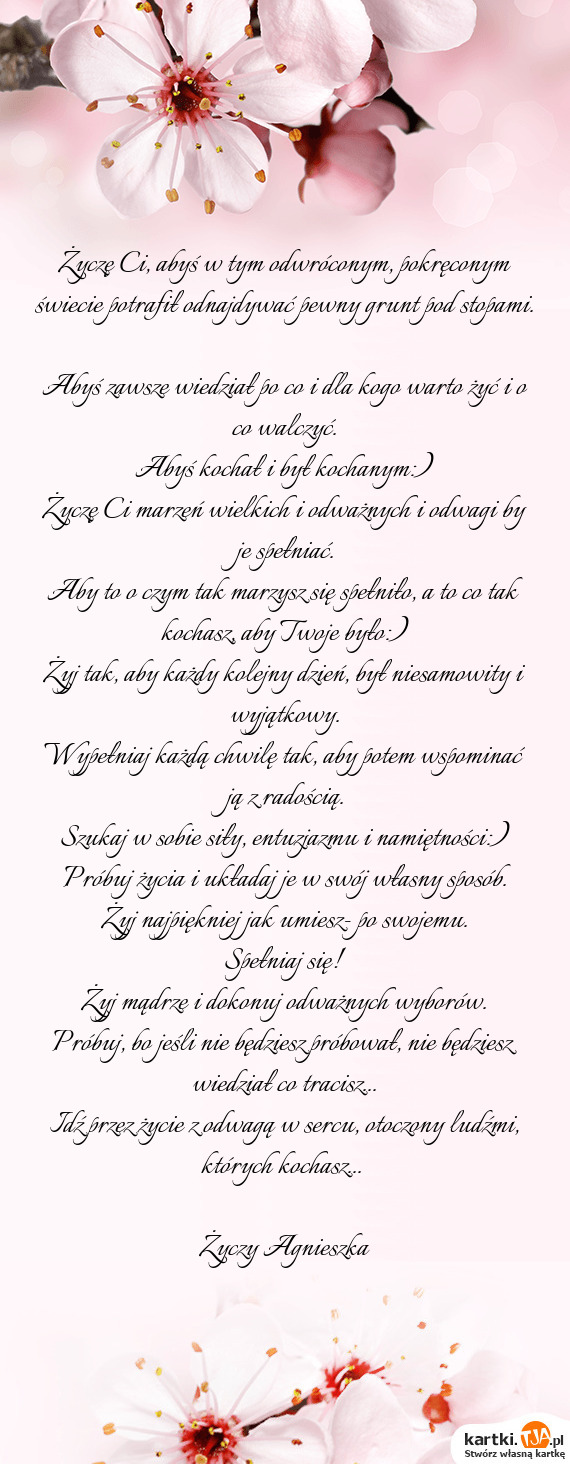 Życzę Ci, abyś w tym odwróconym, pokręconym
świecie potrafił odnajdywać pewny grunt pod stopami.
Abyś zawsze wiedział po co i dla kogo warto żyć i o
co walczyć.
Abyś kochał i był kochanym:)
Życzę Ci marzeń wielkich i odważnych i odwagi by
je spełniać.
Aby to o czym tak marzysz się spełniło, a to co tak
kochasz, aby Twoje było:)
Żyj tak, aby każdy kolejny dzień, był niesamowity i
wyjątkowy.
Wypełniaj każdą chwilę tak, aby potem wspominać
ją z radością.
Szukaj w sobie siły, entuzjazmu i namiętności:)
Próbuj życia i układaj je w swój własny sposób.
Żyj najpiękniej jak umiesz- po swojemu.
Spełniaj się!
Żyj mądrze i dokonuj odważnych wyborów.
Próbuj, bo jeśli nie będziesz próbował, nie będziesz
wiedział co tracisz...
Idź przez życie z odwagą w sercu, otoczony ludźmi,
których kochasz...
Życzy Agnieszka
kartki.TJA.pl
Stwórz własną kartkę